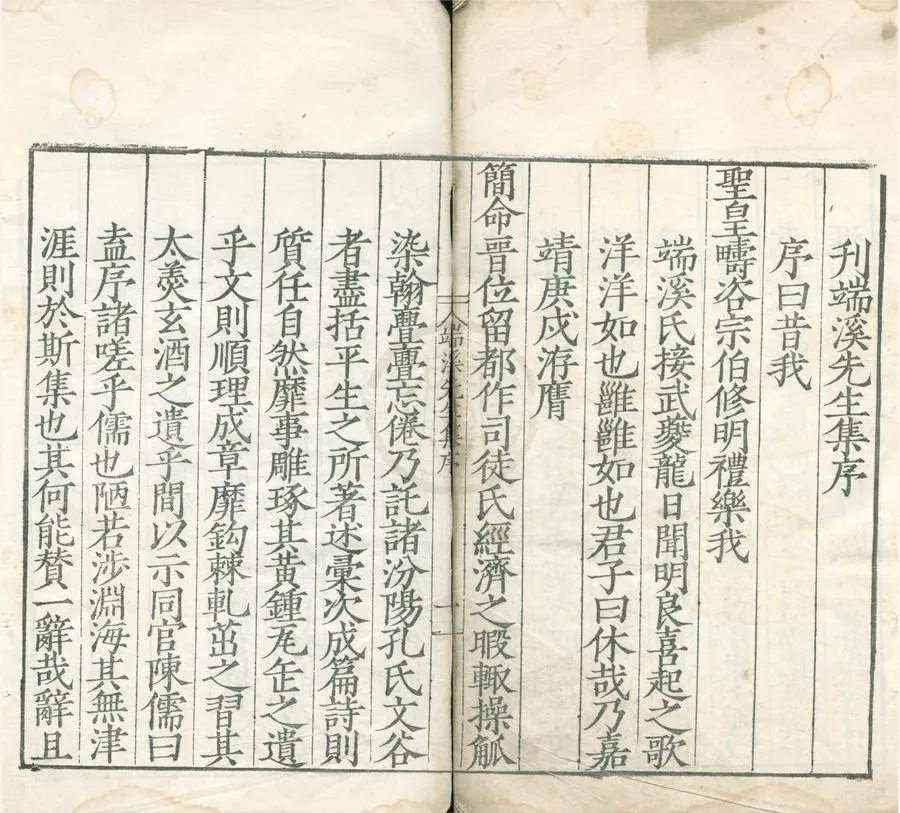 刊端溪先生集序
序曰昔我
聖皇疇咨宗伯修明禮樂我
端溪氏接武夔龍日聞明良喜起之歌
洋洋如也雝雝如也君子曰休哉乃嘉
靖庚戌洊膺
簡命晉位留都作司徒氏經濟之暇輙操觚
端溪先生集序
一
染翰亹亹忘倦乃託諸汾陽孔氏文谷
者盡括平生之所著述彚次成篇詩則
質任自然靡事雕琢其黃鍾瓦缶之遺
乎文則順理成章靡鈎棘軋茁之習其
太羹玄酒之遺乎間以示同官陳儒曰
盍序諸嗟乎儒也陋若涉淵海其無津
涯則於斯集也其何能賛一辭哉辭且